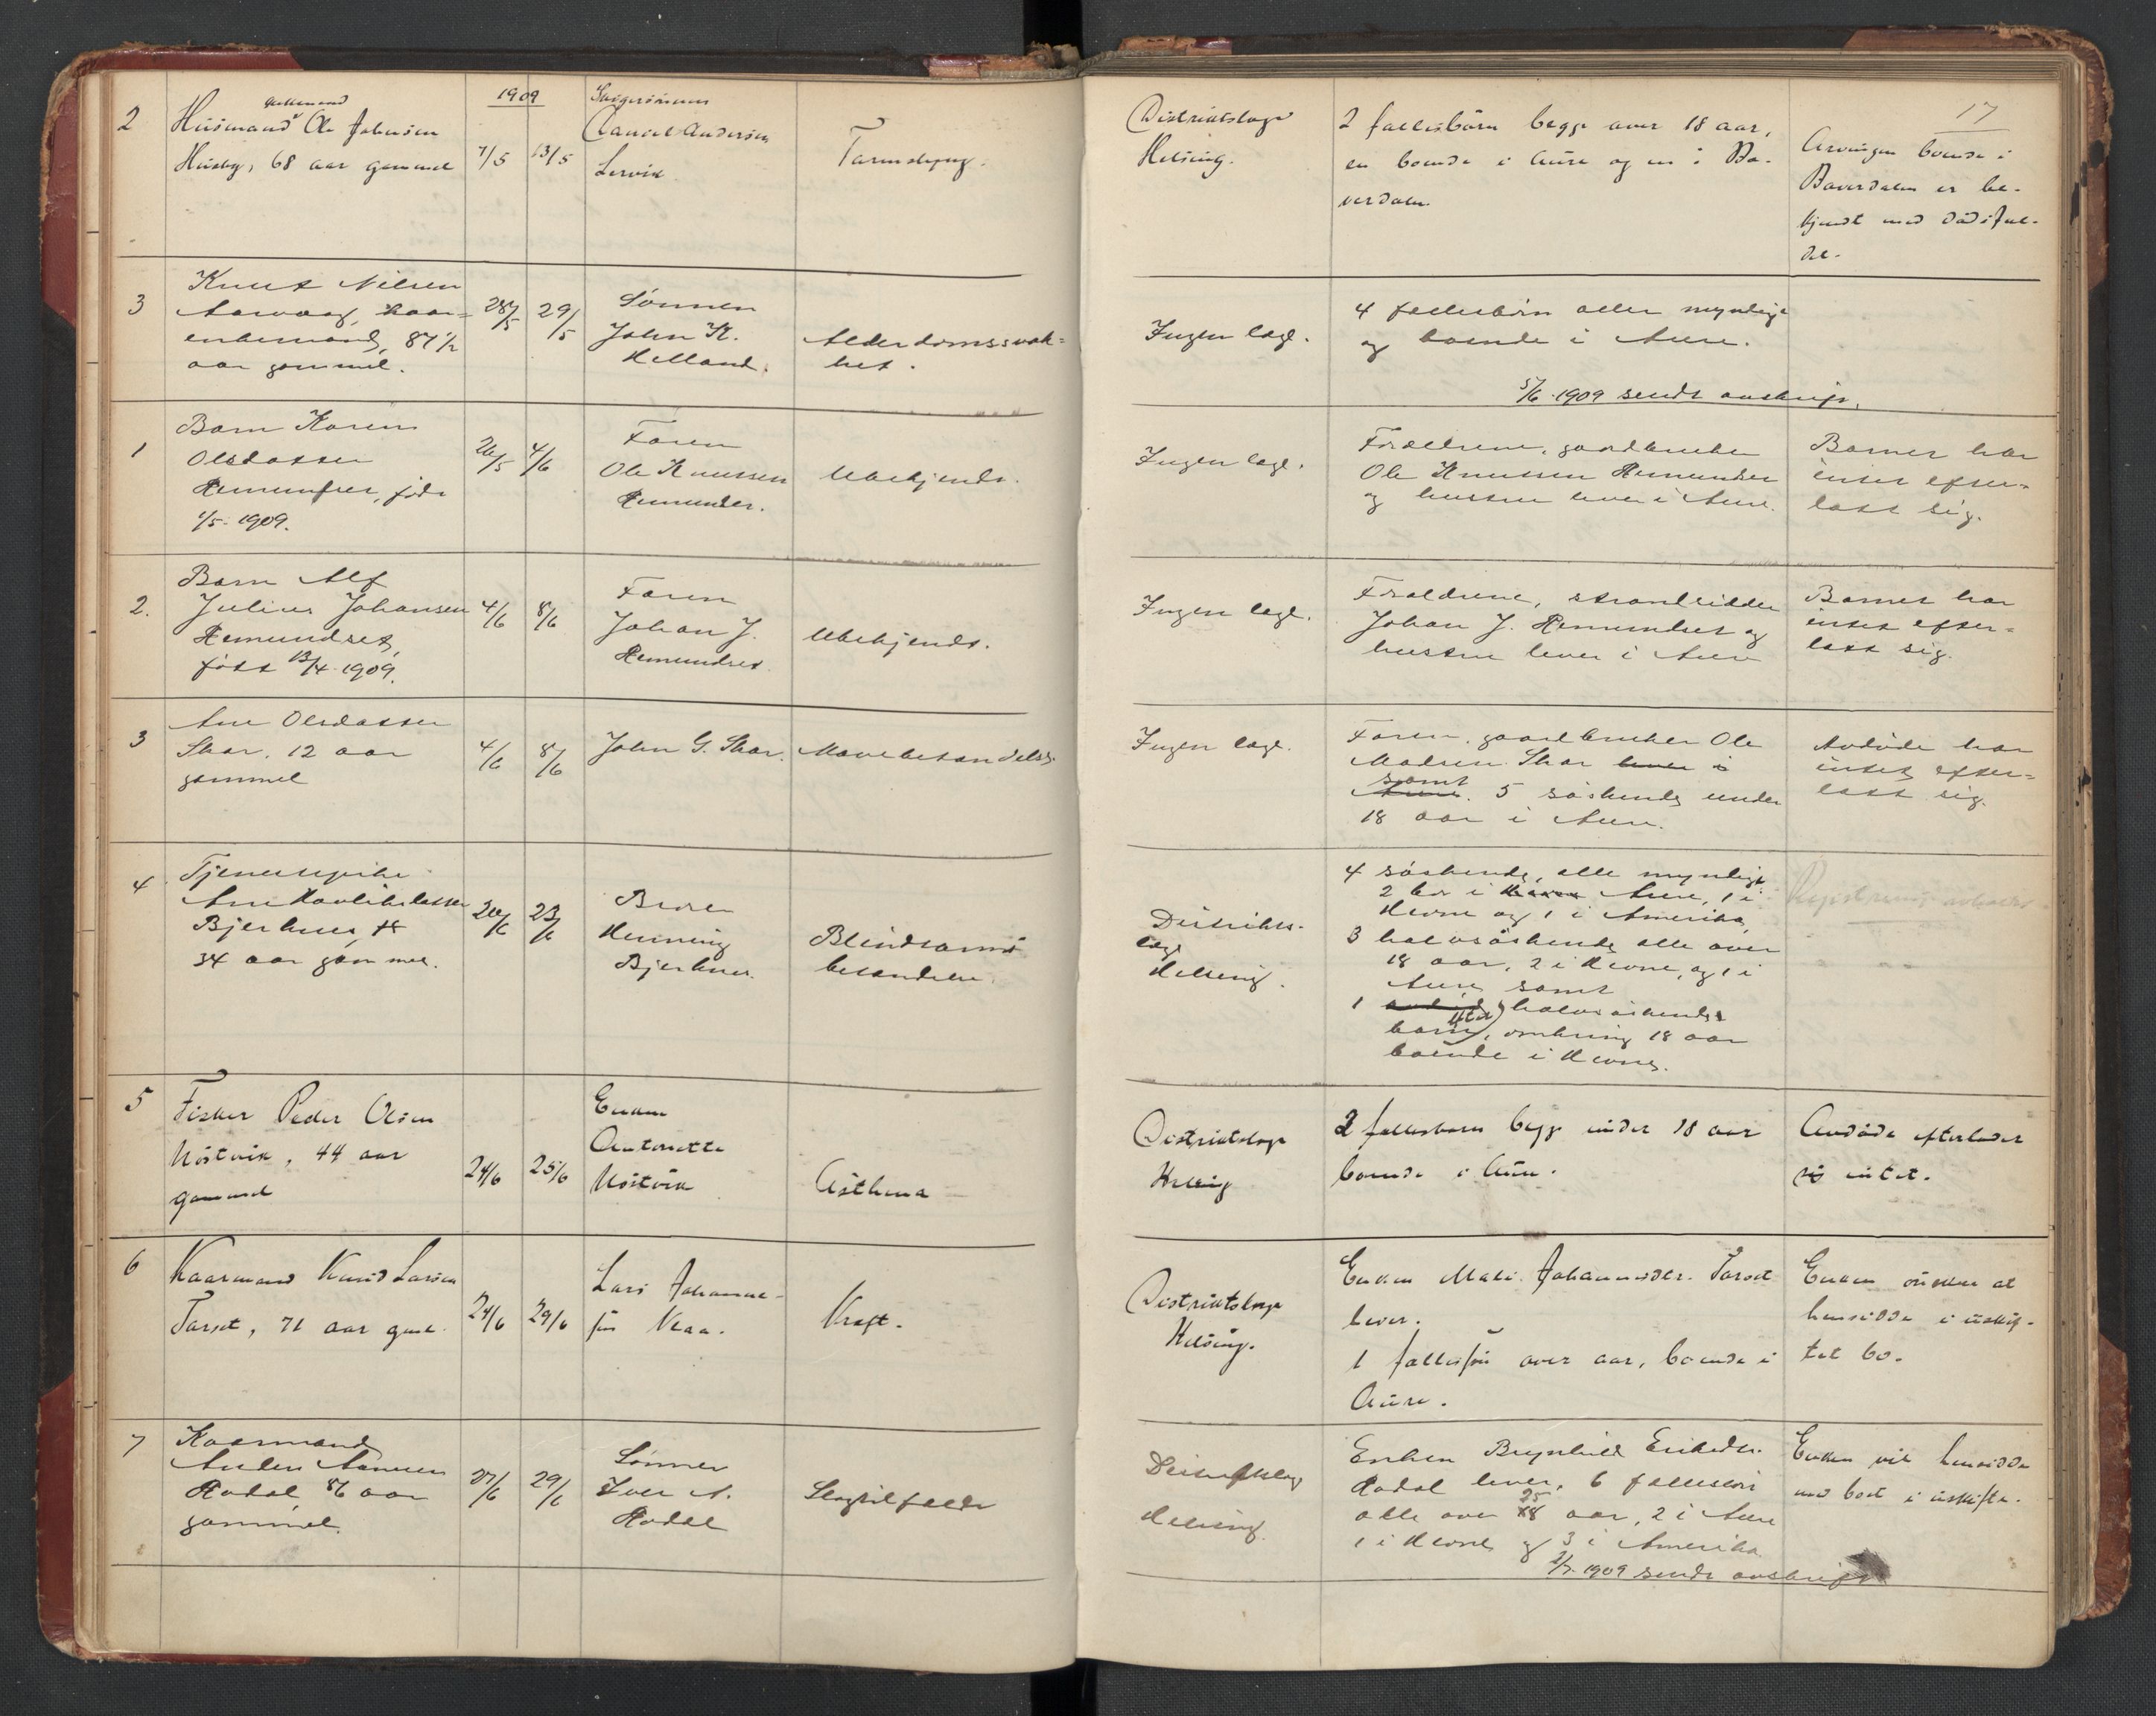 17
1909
2
Husmand Ole Johnsen
Husby, 68 aar gammel
7/5
13/5
Svigersönnen
Daniel Andersen
Lervik
Distriktslæge
Helsing.
2 fællesbörn begge over 18 aar,
en boende i Aure og en i Bæ-
verdalen
Arvingen boende i
Bæverdalen er be-
kjendt med dödsfal-
det.
3
Knut Nilsen
Aarvaag, kaar-
enkemand, 87 1/2
aar gammel.
28/5
29/5
Sönnen
John K.
Helland.
Alderdomssvak-
het.
Ingen læge.
4 fellesbörn aller myndige
og boende i Aure.
5/6 1909 sendt avskrift.
1
Barn Karen
Olsdatter
Remundset, föde
1/5 1909.
26/5
4/6
Faren
Ole Knutsen
Remundset.
Ubekjendt.
Ingen læge.
Foreldrene, gaardbruker
Ole Knutsen Remundset
og hustru lever i Aure.
Barnet har
intet efter-
latt sig.
2.
Barn Alf
Julius Johansen
Remundset,
födt 13/4 1909.
4/6
8/6
Faren
Johan J.
Remundset.
Ubekjendt.
Ingen læge.
Foreldrene, strandsidder
Johan J. Remundset og
hustru lever i Aure
Barnet har
intet efter-
latt sig.
3
Ane Olsdatter
Skar, 12 aar
gammel
4/6
8/6
John G. Skar.
Mavebetændelse
Ingen læge.
Faren, gaardbruker Ole
Madsen Skar lever i
samt
Aure. 5 söskende under
18 aar i Aure.
Avdöde har
intet efter-
latt sig.
4
Tjenestepike
Ane
Bjerknes,
34 aar gammel.
20/6
23/6
Broren
Henning
Bjerknes.
Blindtarms
betændelse.
Distrikts-
læge
Helsing.
4 söskende, alle myndige
2 bor i Aure, 1 i
Hevne og 1 i Amerika,
3 halvsöskende alle over
18 aar, 2 i Hevne, og 1 i
Aure samt
1 halvsöskende
barn, omkring 18 aar
boende i Hevne.
5
Fisker Peder Olsen
Nöstvik, 44 aar
gammel
24/6
25/6
Enken
Antonette
Nöstvik
Asthma
Distriktslæge
Helsing
2 fællesbarn begge under 18 aar
boende i Aure.
Avdöde efterlader
sig intet.
6
Kaarmand Knud Larsen
Tarset, 71 aar gml.
24/6
29/6
Lars Johanne-
sen Kaa.
Kræft.
Distriktslæge
Helsing.
Enken Mali Johannesdr. Tarset
lever.
1 fællessön over aar, boende i
Aure.
Enken önsker at
hensidde i uskif-
tet bo.
7
Kaarmand
Anders Aamsen
Rodal, 86 aar
gammel.
27/6
29/6
Sönnen
Iver A.
Rodal
Slagtilfelde
Distriktslæge
Helsing.
Enken Brynhild Eriksdtr.
Rodal lever, 6 fellesbörn
25
alle over 18 aar, 2 i Aure
1 i Hevne og 3 i Amerika
2/7 1909 sendt avskrift
Enken vil hensidde
med boet i uskifte.